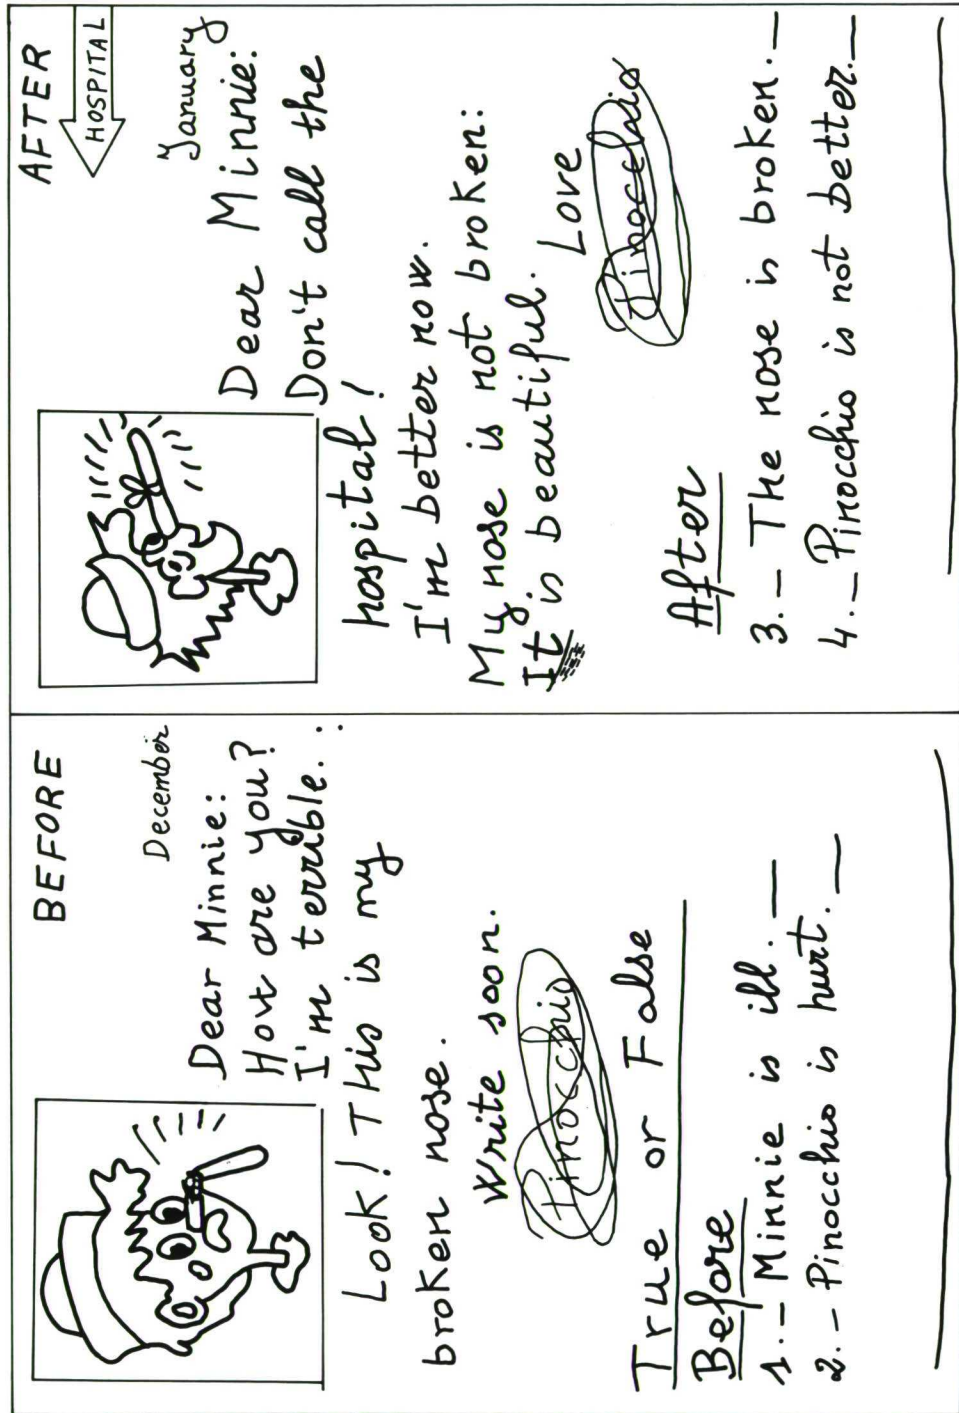 BEFORE
December
Dear Minnie:
How are you?
I'm terrible.
Look! This is my
broken nose.
Write soon.
Pinocchio
True or False
Before
1.- Minnie is ill. —
2.- Pinocchio is hurt. —
AFTER
HOSPITAL
January
Dear Minnie:
Don't call the
hospital!
I'm better now.
My nose is not broken:
It is beautiful.
Love
Pinocchio
After
3.- The nose is broken. —
4.- Pinocchio is not better. —